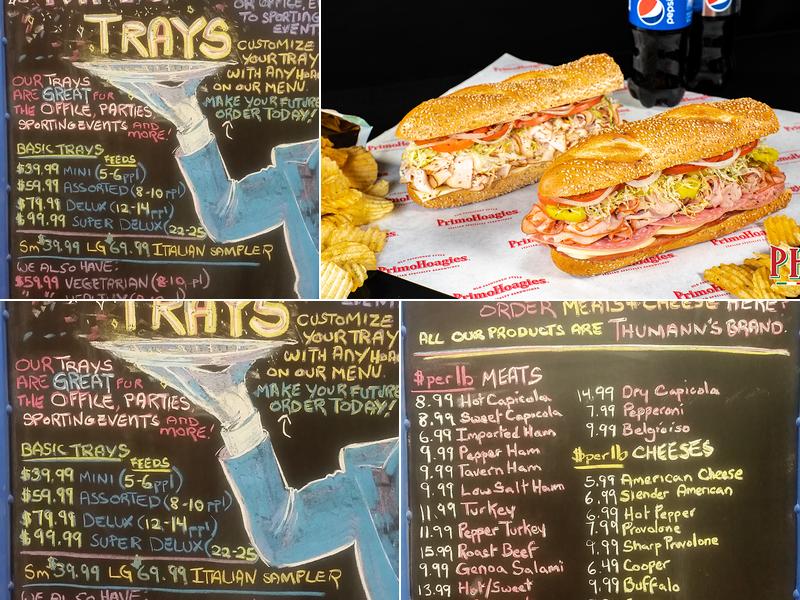 OR OFFICE, E
TO SPORTING
EVENT
TRAYS
CUSTOMIZE
YOUR TRAY
WITH ANY HOA
ON OUR MENU.
MAKE YOUR FUTURE
ORDER TODAY!
OUR TRAYS
ARE GREAT FOR
THE OFFICE, PARTIES,
SPORTING EVENTS AND
MORE!
BASIC TRAYS
FEEDS
$39.99 MINI (5-6ppl)
$59.99 ASSORTED (8-10ppl)
$79.99 DELUX (12-14ppl)
$99.99 SUPER DELUX (22-25
Sm $39.99 LG $69.99 ITALIAN SAMPLER
WE ALSO HAVE:
$59.99 VEGETARIAN (8-10ppl)
pepsi
PrimoHoagies
PrimoHoagies
PrimoHoagies
PrimoHoagies
PrimoHoagies
TRAYS
CUSTOMIZE
YOUR TRAY
WITH ANY HOA
ON OUR MENU.
MAKE YOUR FUTURE
ORDER TODAY!
OUR TRAYS
ARE GREAT FOR
THE OFFICE, PARTIES,
SPORTING EVENTS AND
MORE!
BASIC TRAYS
FEEDS
$39.99 MINI (5-6ppl)
$59.99 ASSORTED (8-10ppl)
$79.99 DELUX (12-14ppl)
$99.99 SUPER DELUX (22-25
Sm $39.99 LG $69.99 ITALIAN SAMPLER
WE ALSO HAVE:
ORDER MEATS & CHEESE HERE!
ALL OUR PRODUCTS ARE THUMANN'S BRAND.
$per lb MEATS
8.99 Hot Capicola
8.99 Sweet Capicola
6.99 Imported Ham
9.99 Pepper Ham
9.99 Tavern Ham
9.99 Low Salt Ham
11.99 Turkey
11.99 Pepper Turkey
15.99 Roast Beef
9.99 Genoa Salami
13.99 Hot/Sweet
14.99 Dry Capicola
7.99 Pepperoni
9.99 Belgioiso
$per lb CHEESES
5.99 American Cheese
6.99 Slender American
6.99 Hot Pepper
7.99 Provolone
9.99 Sharp Provolone
6.49 Cooper
9.99 Buffalo